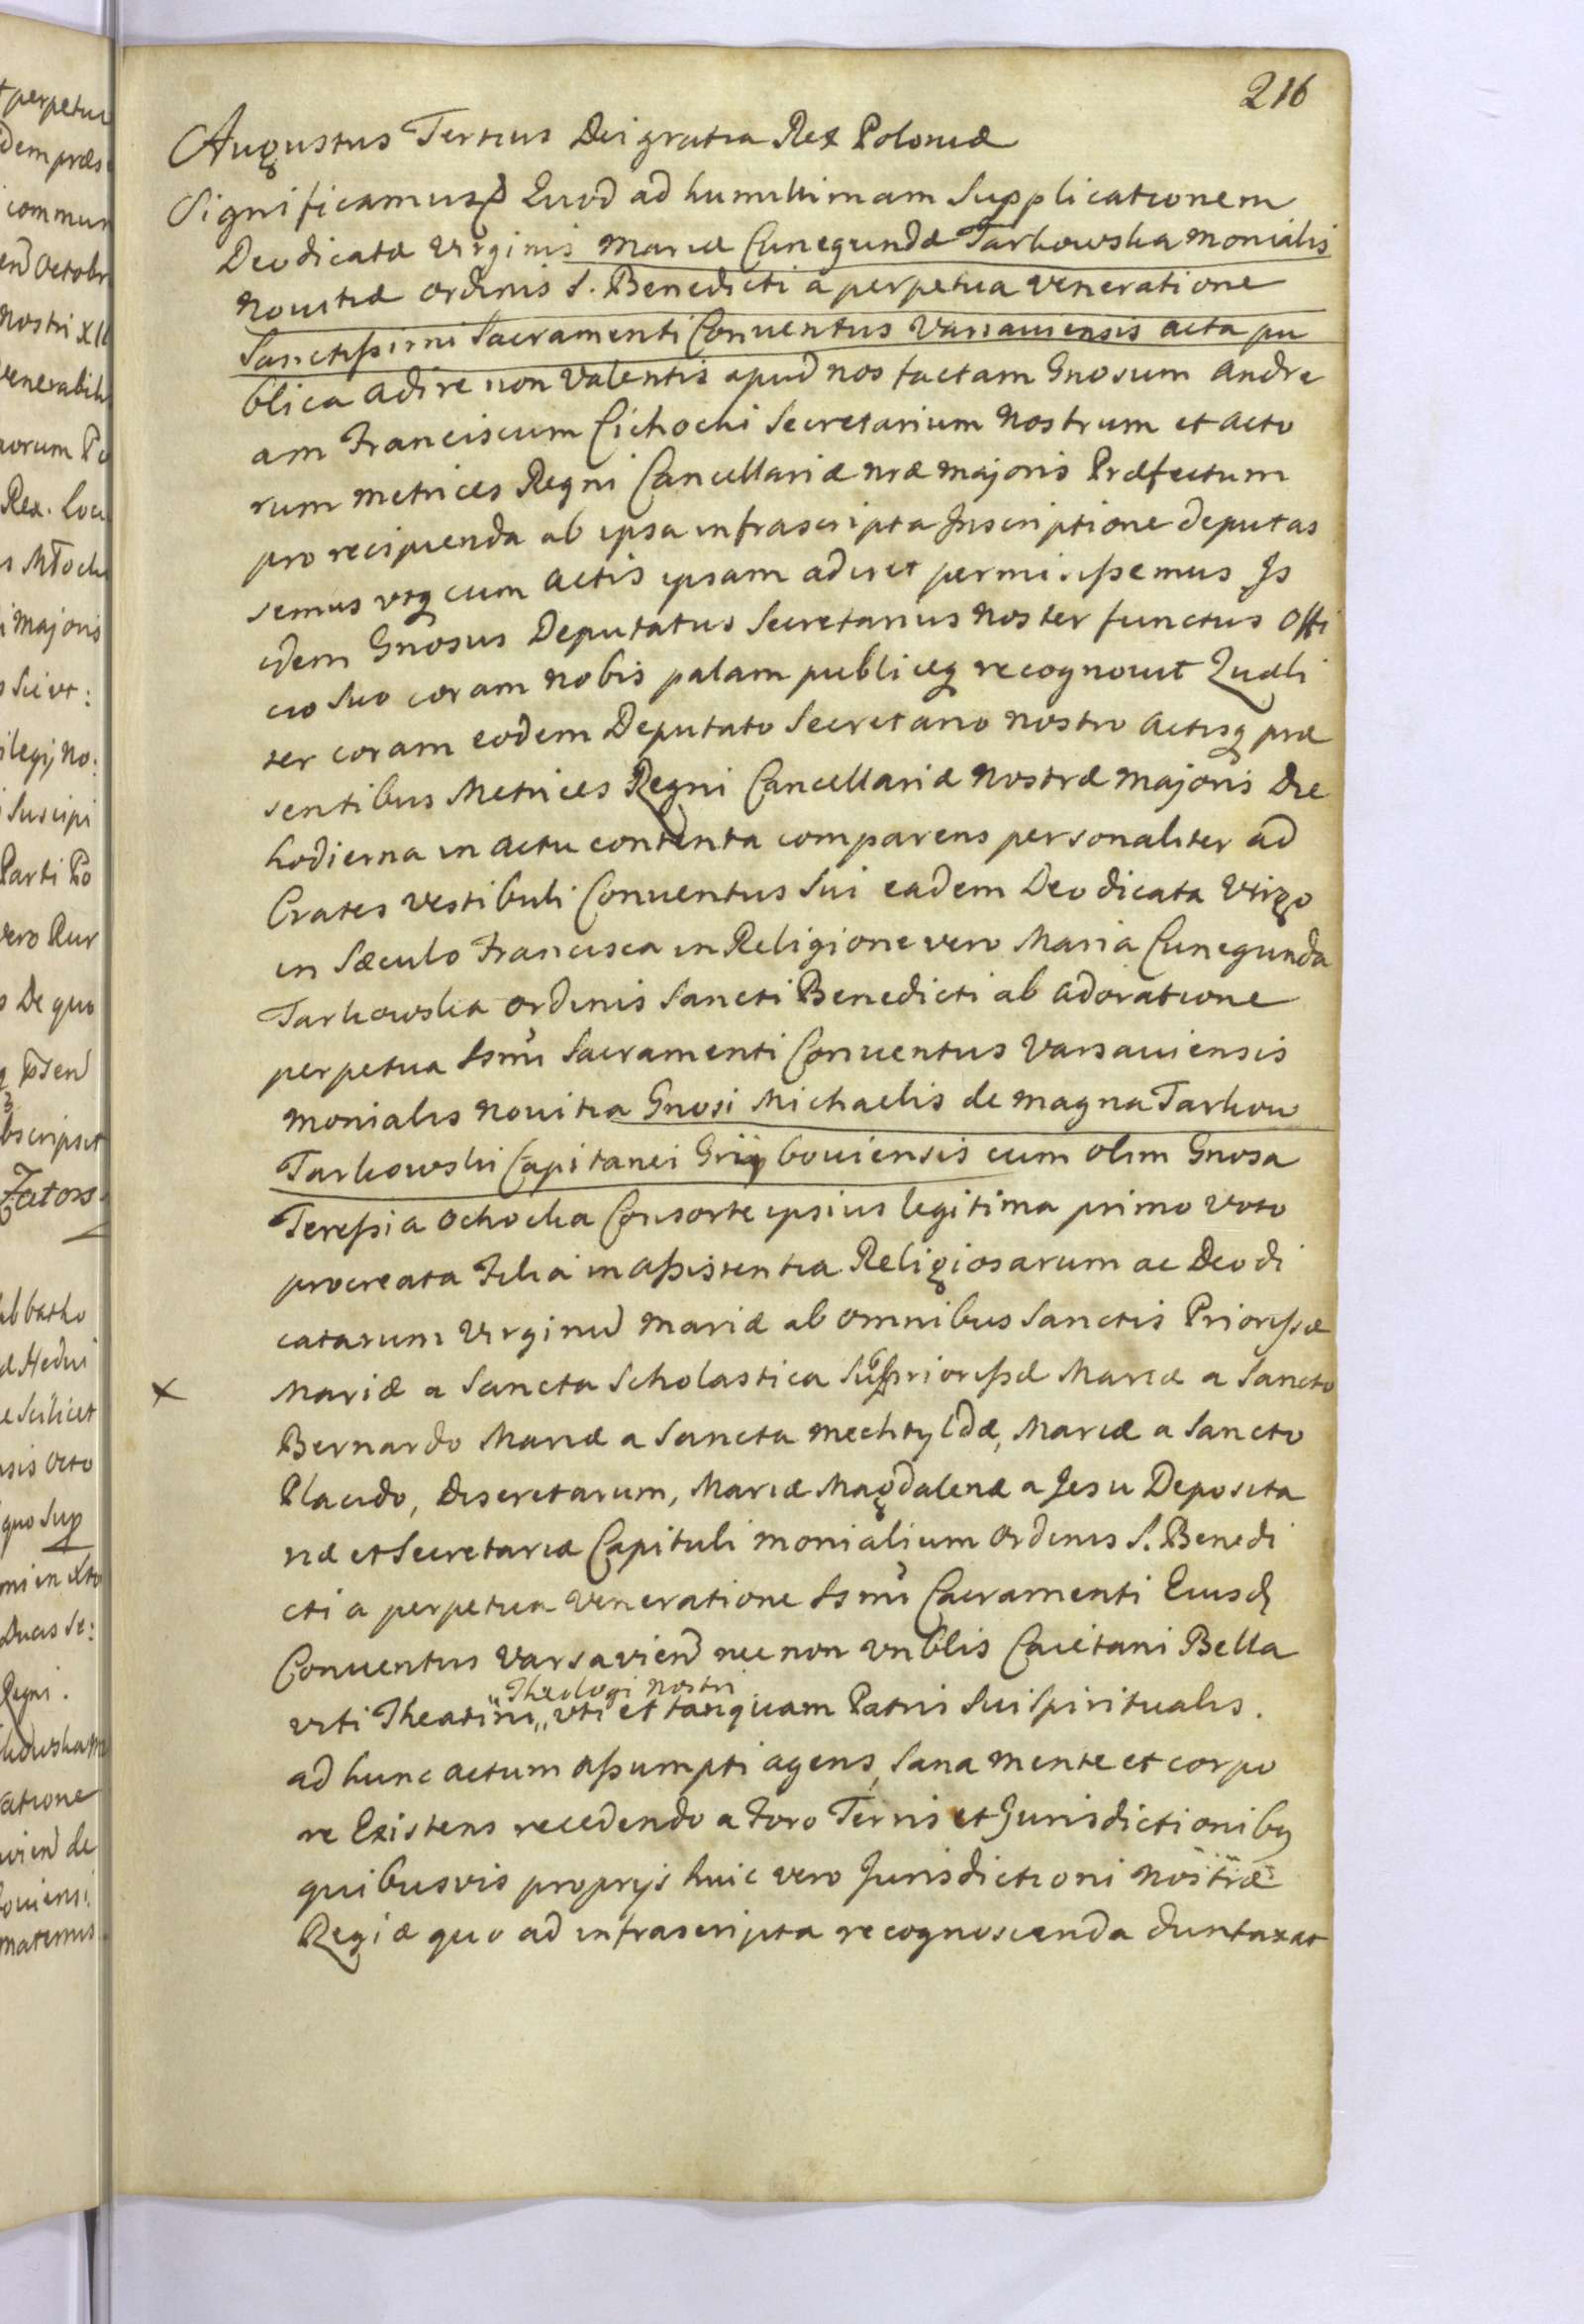 216
Augustus Tertius Dei gratia Rex Poloniæ
Significamus Quod ad humillimam Supplicationem
Deodicatæ Virginis Mariæ Cunegundæ Tarkowska Monialis
Novitiæ ordinis S. Benedicti a perpetua veneratione
Sanctissimi Sacramenti Conventus Varsaviensis acta pu
blica adire non Valentis apud nos factam Gnosum Andre
am Franciscum Cichocki Secretarium Nostrum et acto
rum Metrices Regni Cancellariæ nræ Majoris Præfectum
pro recipienda ab ipsa infrascripta Inscriptione deputas
semus utq cum actis ipsam adiret permisissemus Is
idem Gnosus Deputatus Secretarius Noster functus offi
cio Suo coram Nobis palam publiceq recognovit Quali
ter coram eodem Deputato Secretario Nostro Actisq præ
sentibus Metrices Regni Cancellariæ Nostræ Majoris Die
hodierna in actu contenta comparens personaliter ad
Crates Vestibuli Conventus Sui eadem Deodicata Virgo
in Sæculo Francisca in Religione vero Maria Cunegunda
Tarkowska ordinis Sancti Benedicti ab adoratione
perpetua Ssmi Sacramenti Conventus Varsaviensis
Monialis Novitia Gnosi Michaelis de Magna Tarkow
Tarkowski Capitanei Griybowiensis cum olim Gnosa
Teressia Ochocka Consorte ipsius legitima primo voto
procreata Filia in assistentia Religiosarum ac Deodi
catarum Virginu Mariæ ab omnibus Sanctis Priorissæ
x Mariæ a Sancta Scholastica Suppriorissæ Mariæ a Sancto
Bernardo Mariæ a Sancta Mechtyldæ, Mariæ a Sancto
Placido, Discretarum, Mariæ Magdalenæ a Jesu Deposita
riæ et Secretariæ Capituli Monialium Ordinis S. Benedi
cti a perpetua Veneratione Ssmi Sacramenti Eiusd
Conventus Varsavien nec non Vnblis Caietani Bella
Theologi Nostri
viti Theatini, uti et tanquam Patris Sui Spiritualis.
ad hunc actum assumpti agens, Sana Mente et corpo
re Existens recedendo a Foro Terris et Jurisdictionibq
quibusvis proprijs huic vero Jurisdictioni Nostræ
Regiæ quo ad infrascripta recognoscenda duntaxat